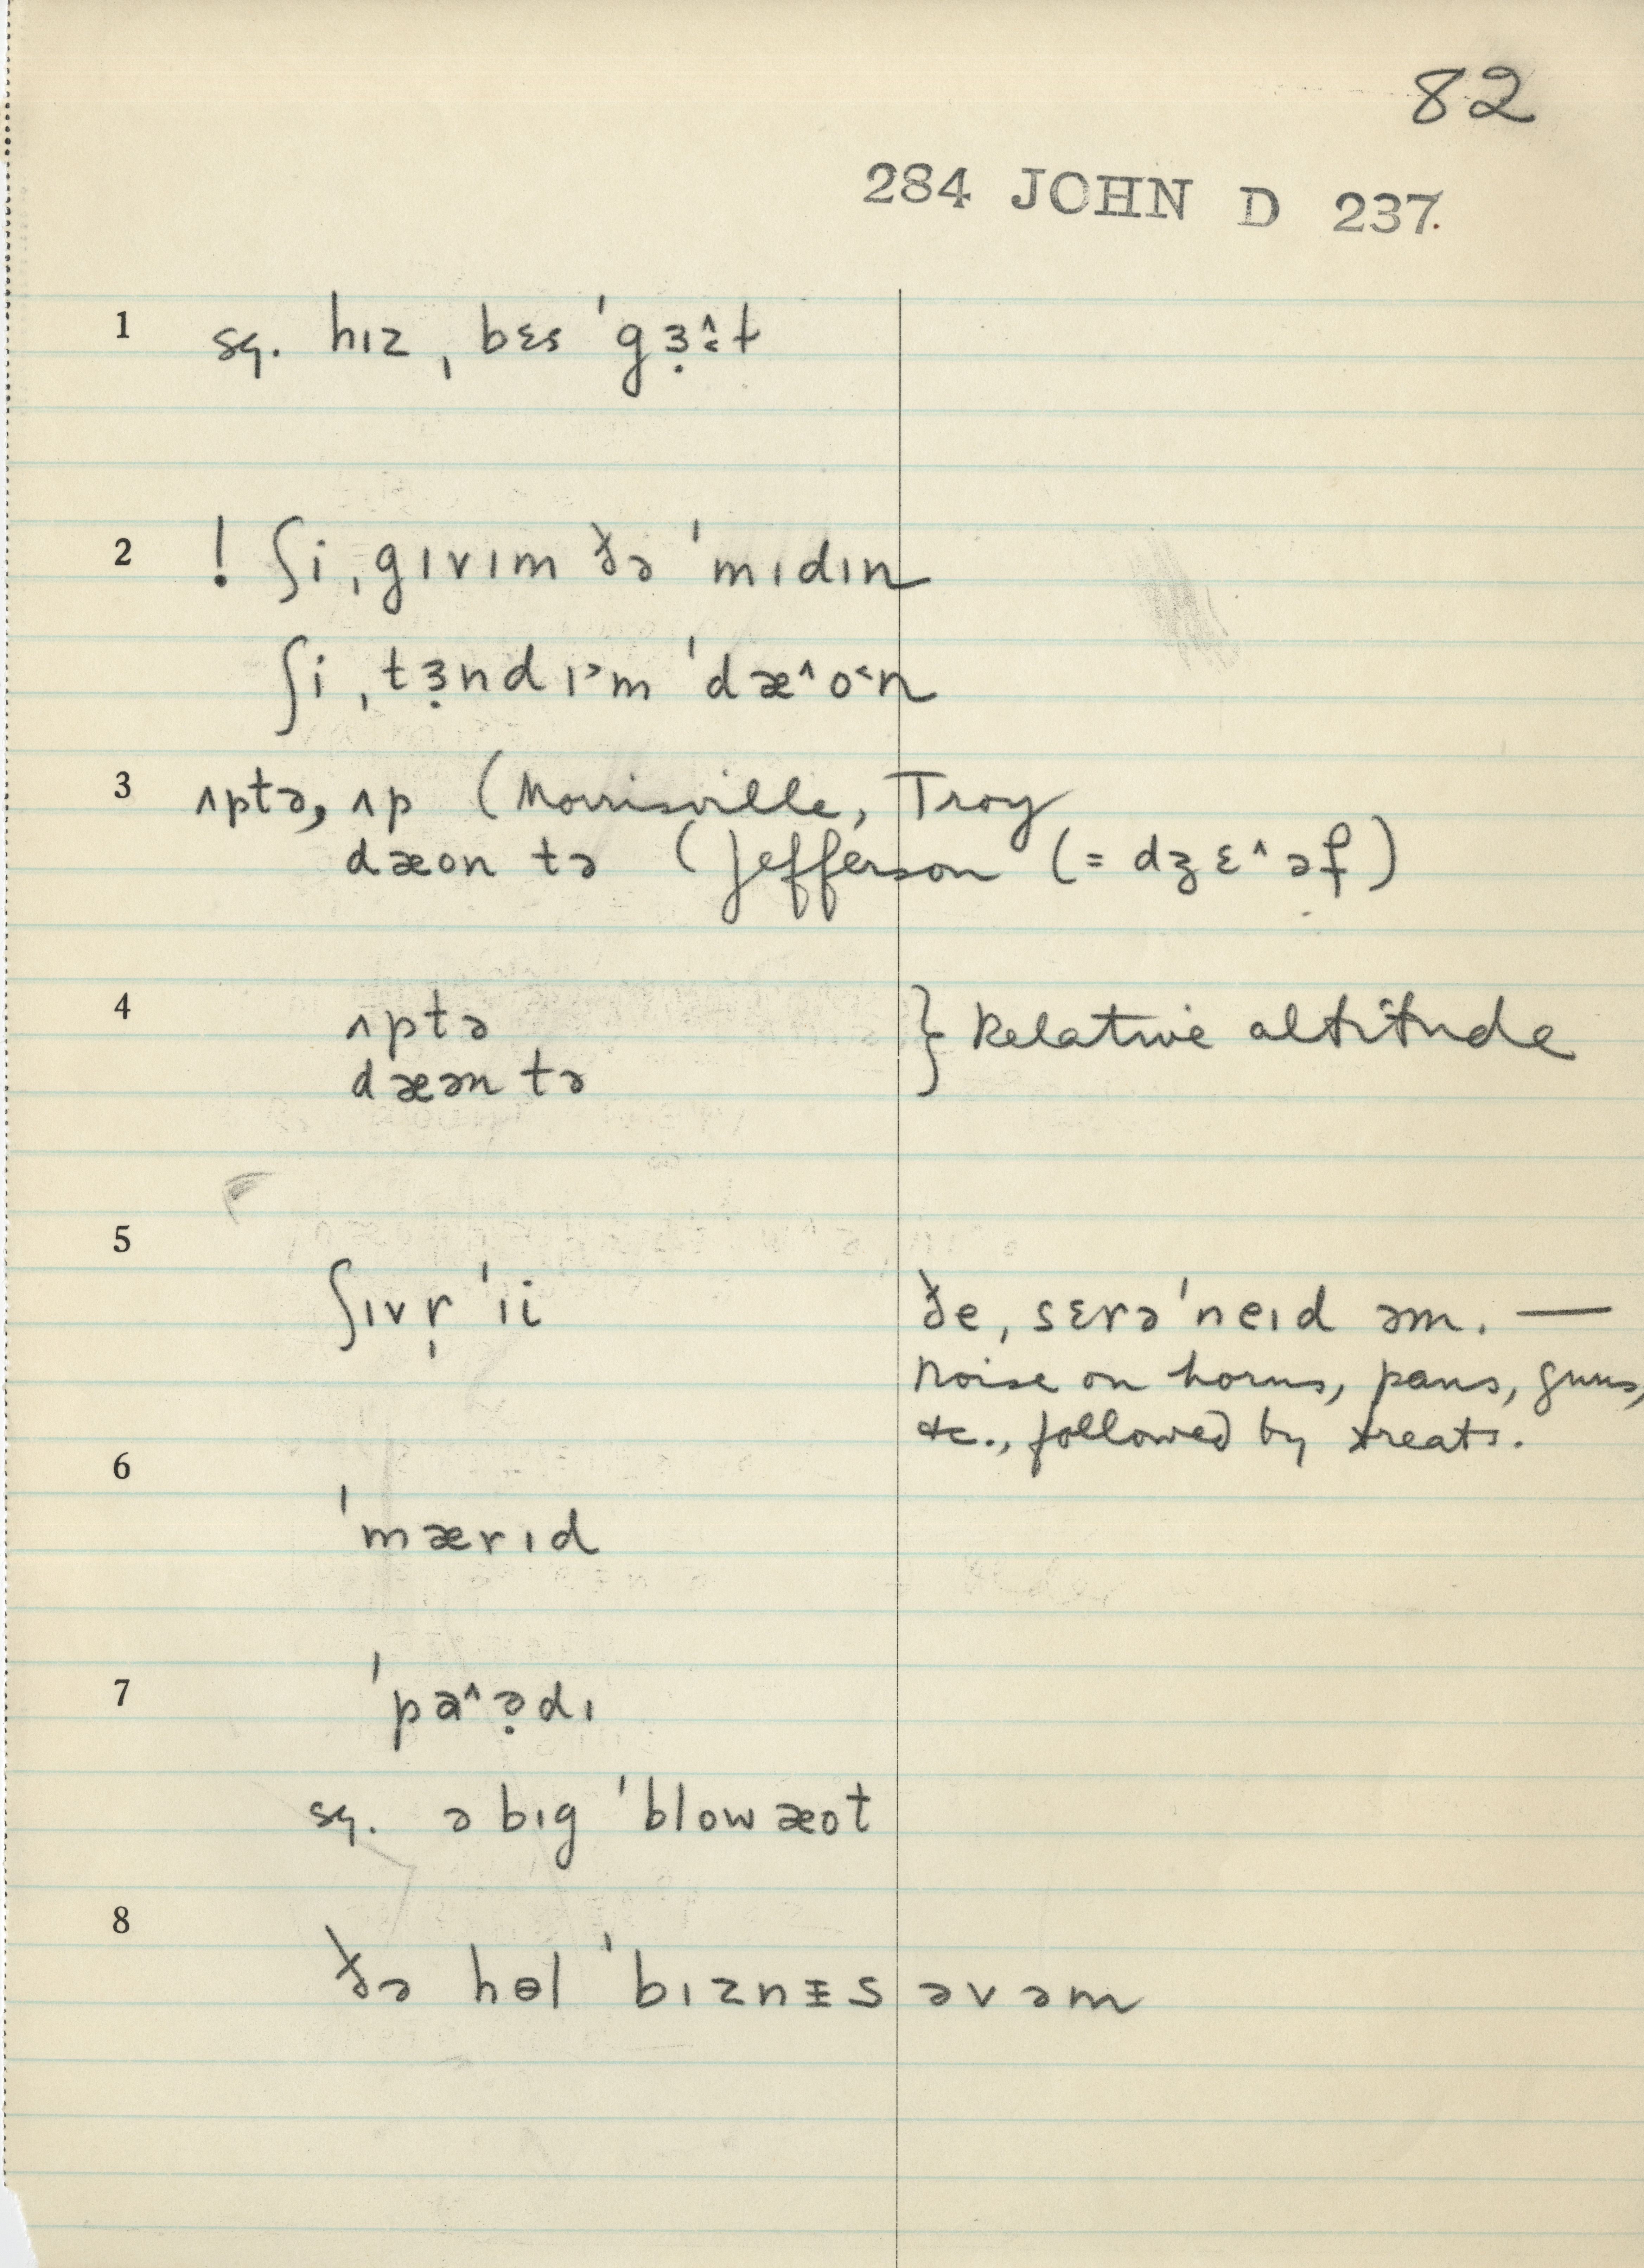 82
284 JOHN D 237.
1 sq. hɪz ˌbɛs ˈgɜ̣˄˂t
2 ! ʃi ˌgɪvɪm ðə ˈmɪdɪn
ʃi ˌtɜ̣nd ɪ˃m ˈdæ˄o˂n
3 ʌptə, ʌp (Morrisville, Troy
dæon tə (Jefferson (= dʒɛ˄əf)
4 ʌptə } Relative altitude
dæən tə
5 ʃɪvr̩ ˈɪi ðe ˌsɛrəˈneɪd əm. —
Noise on horns, pans, guns,
etc., followed by treats.
6 ˈmærɪd
7 ˈpa˄ə̣dɪ
sq. ə bɪg ˈblowæot
8 ðə hɵl ˈbɪznᵻs əvəm